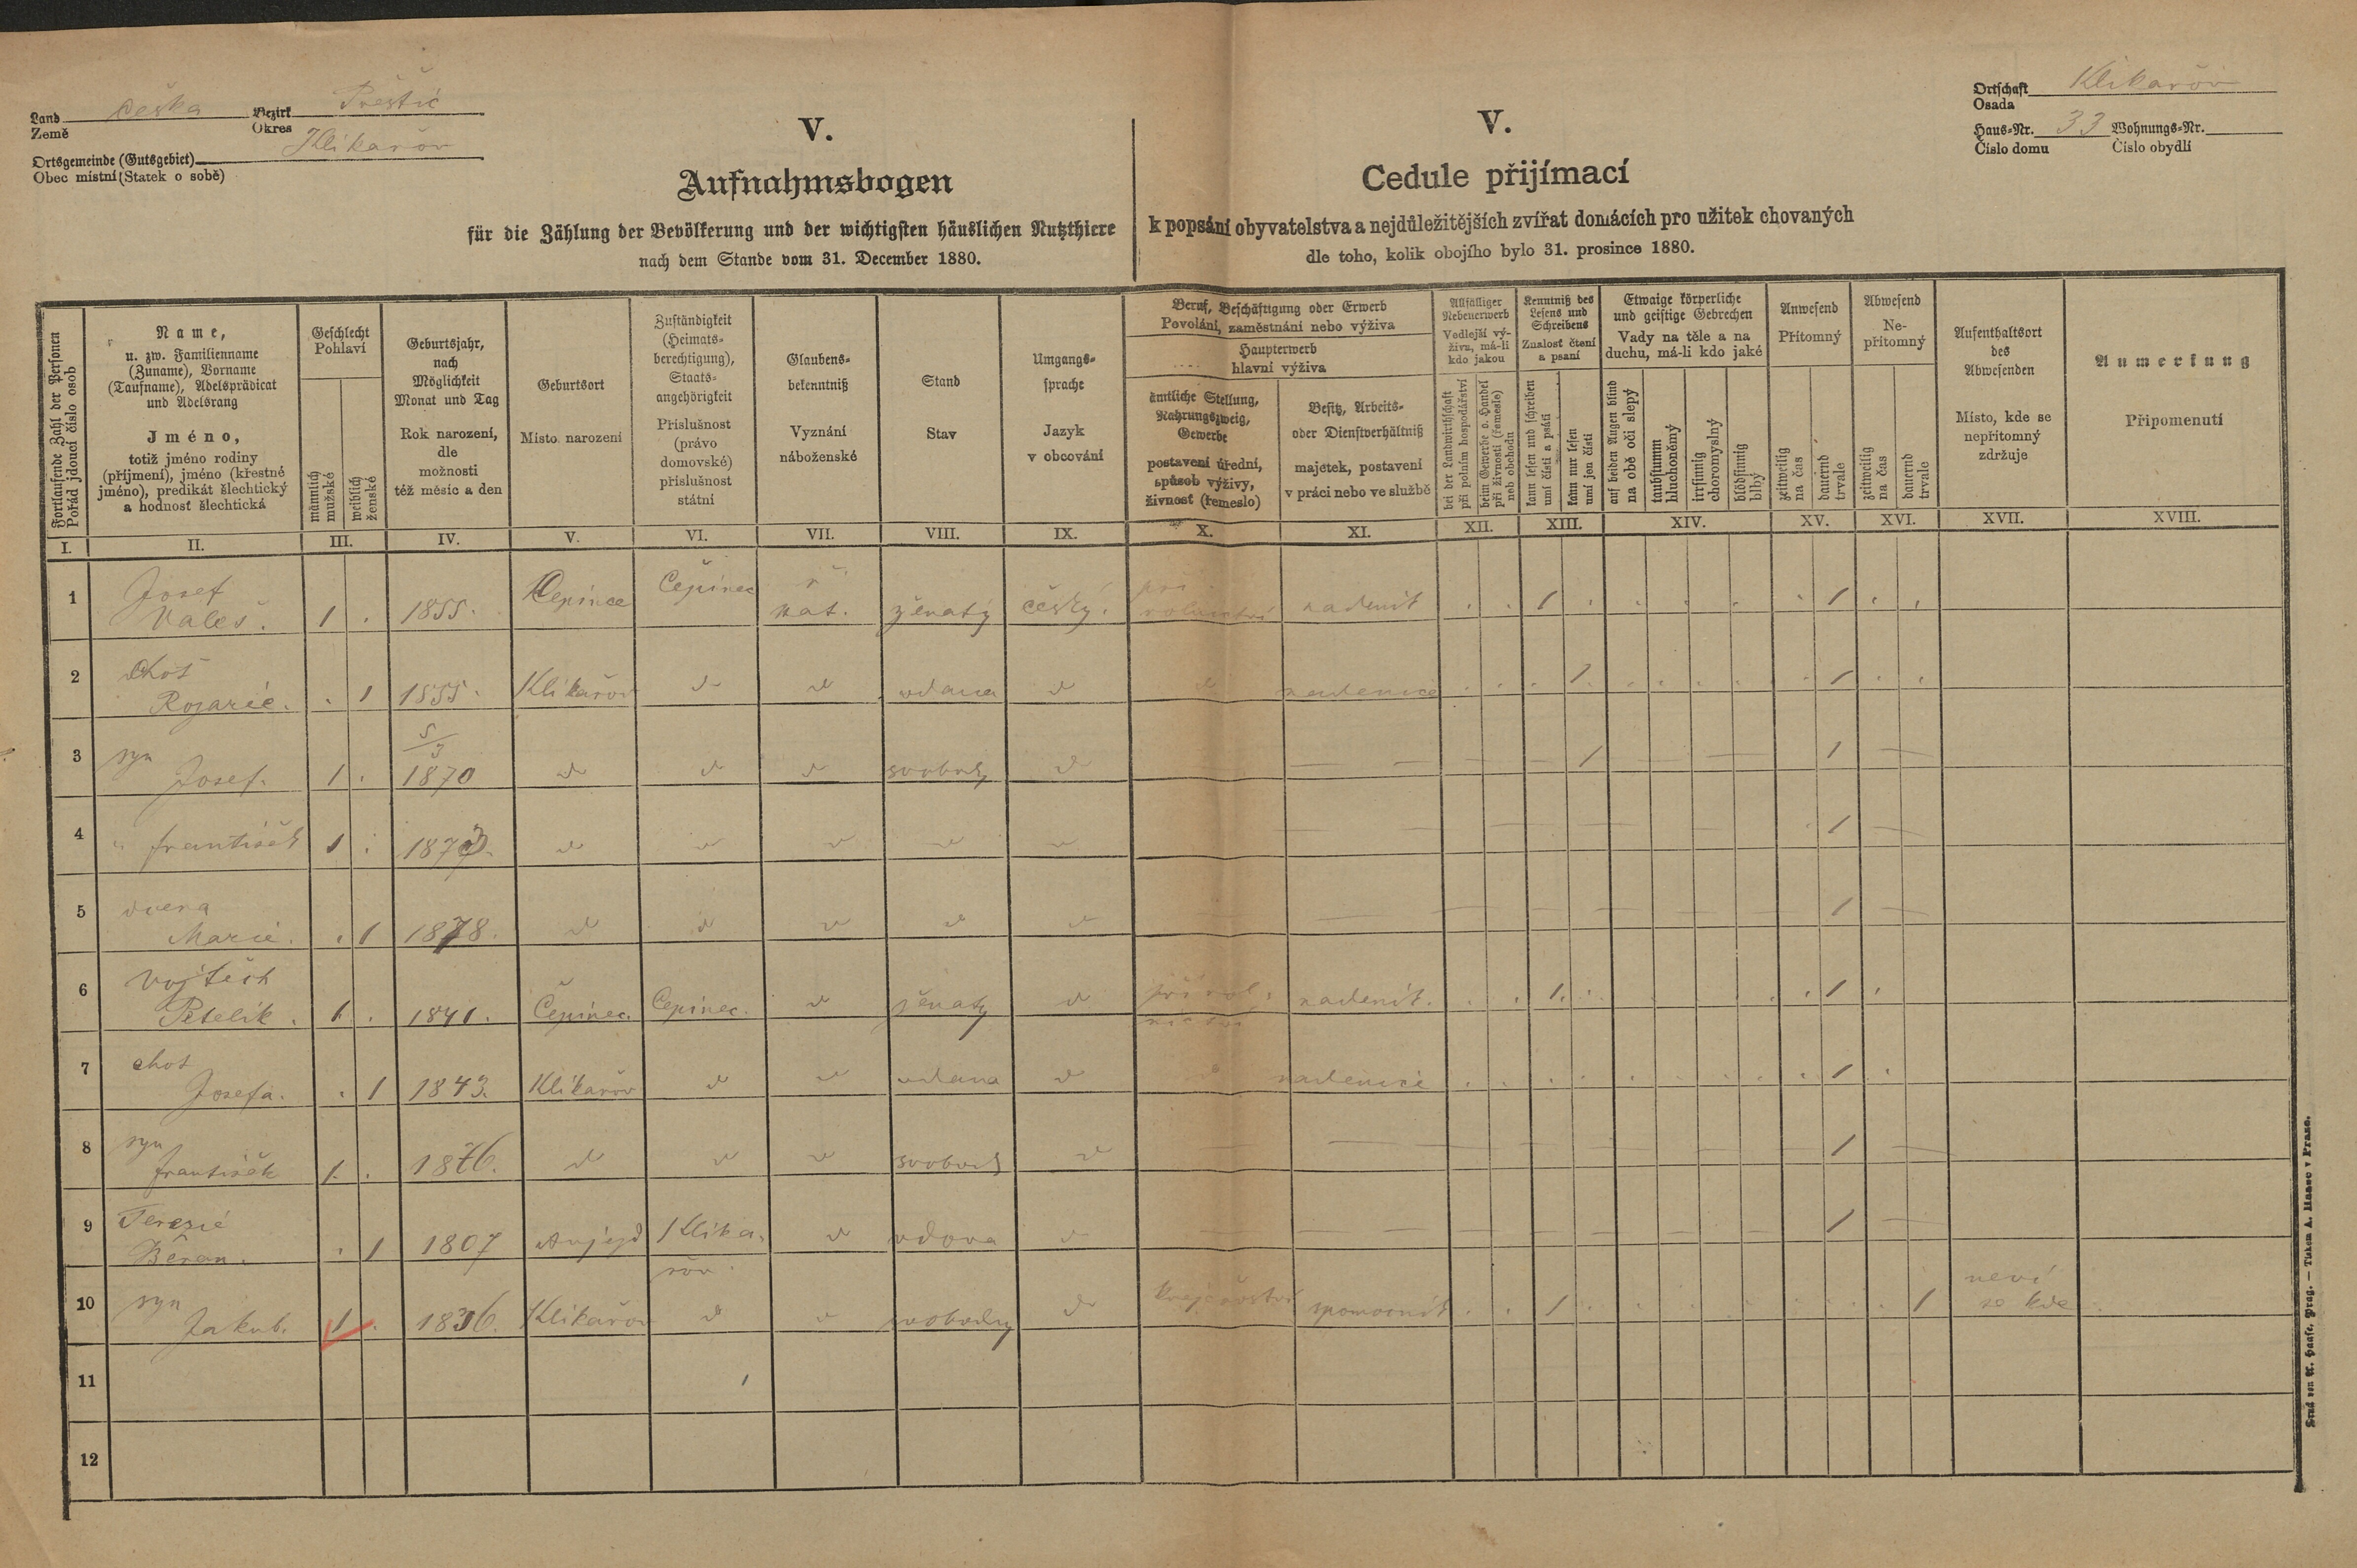 Land Češka Bezirk Přestic
Země Okres
Ortsgemeinde (Gutsgebiet) Klikařov
Obec místní (Statek o sobě)
V.
Aufnahmsbogen
für die Zählung der Bevölkerung und der wichtigsten häuslichen Nutzthiere
nach dem Stande vom 31. December 1880.
V.
Cedule přijímací
k popsání obyvatelstva a nejdůležitějších zvířat domácích pro užitek chovaných
dle toho, kolik obojího bylo 31. prosince 1880.
Ortschaft Klikařov
Osada
Haus-Nr. 33 Wohnungs-Nr.
Číslo domu Číslo obydlí
Fortlaufende Zahl der Personen
Pořád jdoucí číslo osob
Name,
u. zw. Familienname
(Zuname), Vorname
(Taufname), Adelsprädicat
und Adelsrang
Jméno,
totiž jméno rodiny
(příjmení), jméno (křestné
jméno), predikát šlechtický
a hodnost šlechtická
Geschlecht
Pohlaví
männlich
mužské
weiblich
ženské
Geburtsjahr,
nach
Möglichkeit
Monat und Tag
Rok narození,
dle
možnosti
též měsíc a den
Geburtsort
Místo narození
Zuständigkeit
(Heimats-
berechtigung),
Staats-
angehörigkeit
Příslušnost
(právo
domovské)
příslušnost
státní
Glaubens-
bekenntniß
Vyznání
náboženské
Stand
Stav
Umgangs-
sprache
Jazyk
v obcování
Beruf, Beschäftigung oder Erwerb
Povolání, zaměstnání nebo výživa
Haupterwerb
hlavní výživa
ämtliche Stellung,
Nahrungszweig,
Gewerbe
postavení úřední,
spůsob výživy,
živnost (řemeslo)
Besitz, Arbeits-
oder Dienstverhältniß
majetek, postavení
v práci nebo ve službě
Allfälliger
Nebenerwerb
Vedlejší vý-
živa, má-li
kdo jakou
bei der Landwirthschaft
při polním hospodářství
beim Gewerbe o. Handel
při živnosti (řemesle)
neb obchodu
Kenntniß des
Lesens und
Schreibens
Znalost čtení
a psaní
kann lesen und schreiben
umí čísti a psáti
kann nur lesen
umí jen čísti
Etwaige körperliche
und geistige Gebrechen
Vady na těle a na
duchu, má-li kdo jaké
auf beiden Augen blind
na obě oči slepý
taubstumm
hluchoněmý
irrsinnig
choromyslný
blödsinnig
blbý
Anwesend
Přítomný
zeitweilig
na čas
dauernd
trvale
Abwesend
Ne-
přítomný
zeitweilig
na čas
dauernd
trvale
Aufenthaltsort
des
Abwesenden
Místo, kde se
nepřítomný
zdržuje
Anmerkung
Připomenutí
I. II. III. IV. V. VI. VII. VIII. IX. X. XI. XII. XIII. XIV. XV. XVI. XVII. XVIII.
1 Josef
Valeš. 1 . 1855. Čepinec Čepinec ř. kat. ženatý český. při rolnictví nadeník . . 1 . . . . . 1 . .
2 choť
Rozarie. . 1 1855. Klikařov d d vdana d d nadenice . . . 1 . . . . . 1 . .
3 syn
Josef. 1 . 5/3 1870 d d d svobod. d 1 1
4 " František 1 . 1873. d d d d d 1
5 dcera
Marie. . 1 1878. d d d d d 1
6 Vojtěch
Petelík. 1 . 1841. Čepinec. Čepinec. d ženatý d při rolnictví nadeník. . . 1 . . . 1 .
7 chot
Josefa. . 1 1843. Klikařov d d vdana d d nadenice . . . . . . . . . 1 .
8 syn
František 1. . 1876. d d d svobod d 1
9 Terezie
Beran. . 1 1807 Aujezd Klika-
řov. d vdova d 1
10 syn
Jakub. 1 . 1836. Klikařov d d svobodný d krejčovství pomocník . . 1 . . . . . . . . 1 neví
se kde
11
12
Druck von A. Haase, Prag. — Tiskem A. Haase v Praze.